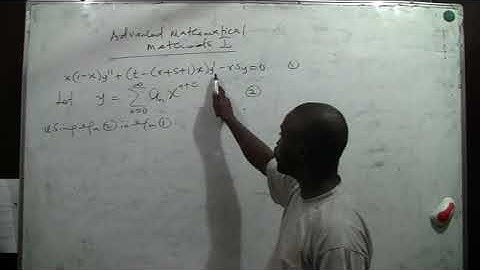 Advanced Mathematical
Methods I
x(1-x)y'' + (t-(r+s+1)x)y' - rsy=0 ①
Let y = ∑_{n=0}^{∞} a_n x^{n+c} ②
Using eqn ② in eqn ①.